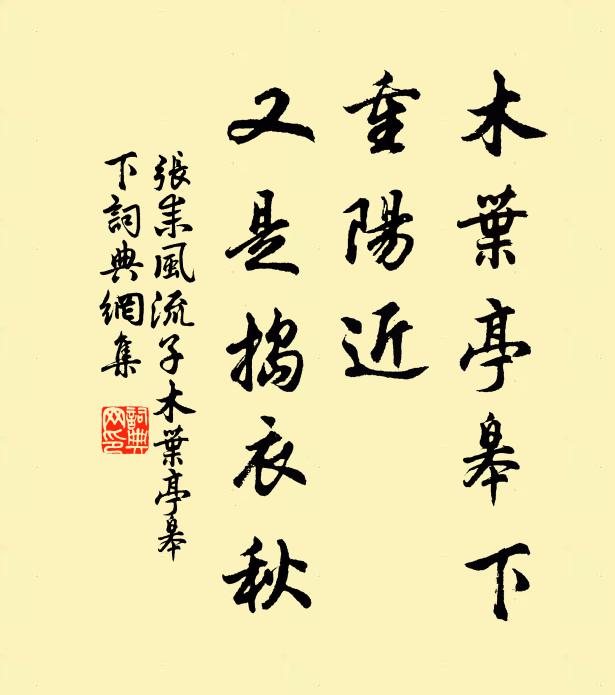 木葉亭皋下
重陽近
又是搗衣秋
張耒風流子木葉亭皋
下詞典網集
詞典網印